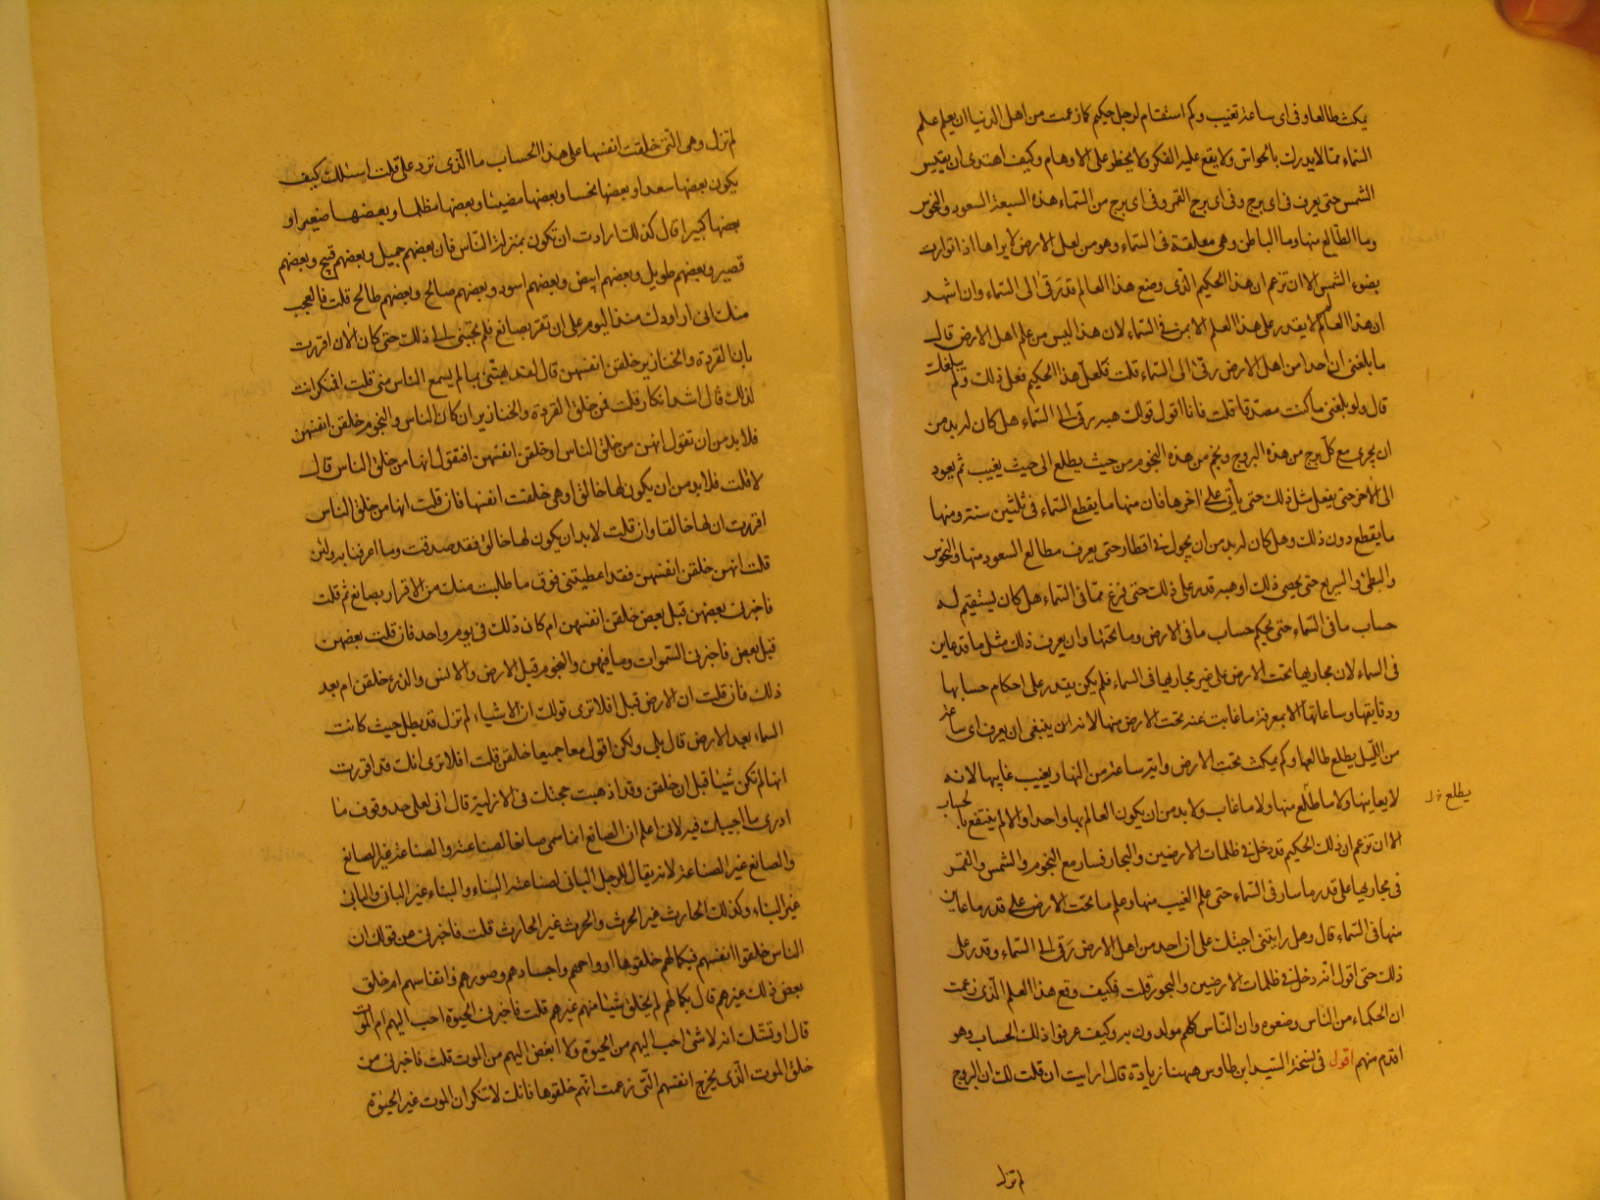 يمكث طالعا وفى اى ساعة تغيب وكم استقام لرجل حكيم كما زعمت من اهل الدنيا ان يعلم علم
السّماء ممّا لا يدرك بالحواسّ ولا يقع عليه الفكر ولا يخطر على الاوهام وكيف اهتدى ان يقيس
الشمس حتى يعرف فى اى برج وفى اى برج القمر وفى اى برج من السّماء هذه السبعة السعود والنحوس
وما الطّالع منها وما الباطن وهى معلقة فى السّماء وهو من اهل الارض لا يراها اذا توارت
بضوء الشمس الا ان تزعم ان هذا الحكيم الّذى وضع هذا العلم قد رقى الى السّماء وانا اشهد
ان هذا العالم لم يقدر على هذا العلم الا بمن فى السّماء لان هذا ليس من علم اهل الارض قال
ما بلغنى ان احدا من اهل الارض رقى الى السّماء قلت فلعلّ هذا الحكيم فعل ذلك ولم يبلغك
قال ولو بلغنى ما كنت مصدّقا قلت فانا اقول قولك هبه رقى الى السّماء هل كان له بد من
ان يجرى مع كلّ برج من هذه البروج ونجم من هذه النجوم من حيث يطلع الى حيث يغيب ثم يعود
الى الآخر حتى يفعل مثل ذلك حتى يأتى على اخرها فان منها ما يقطع السّماء فى ثلثين سنة ومنها
ما يقطع دون ذلك وهل كان له بد من ان يجول فى اقطار حتى يعرف مطالع السعود منها والنحوس
والبطئ والسريع حتى يحصى ذلك او هبه قدر على ذلك حتى فرغ ممّا فى السّماء هل كان يستقيم له
حساب ما فى السّماء حتى يحكم حساب ما فى الارض وما تحتها وان يعرف ذلك مثل ما قد عاين
فى السماء لان مجاريها تحت الارض على غير مجاريها فى السماء فلم يكن يقدر على احكام حسابها
ودقايقها وساعاتها الا بمعرفة ما غاب عنه تحت الارض منها لانه ينبغى ان يعرف اى ساعة
من اللّيل يطلع طالعها وكم يمكث تحت الارض واية ساعة من النهار يغيب غايبها لانه
لا يعاينها ولا ما طلع منها ولا ما غاب ولا بد من ان يكون العالم بها واحدا والا لم ينتفع بالحساب
يطلع خ ل
الا ان تزعم ان ذلك الحكيم قد دخل فى ظلمات الارضين والبحار فسار مع النجوم والشمس والقمر
فى مجاريها على قدر ما سار فى السّماء حتى علم الغيب منها وعلم ما تحت الارض على قدر ما عاين
منها فى السّماء قال وهل رايتنى اجبتك على ان احد من اهل الارض رقى الى السّماء وقدر على
ذلك حتى اقول انّه دخل فى ظلمات الارضين والبحور قلت فكيف وقع هذا العلم الّذى زعمت
ان الحكماء من الناس وضعوه وان النّاس كلهم مولدون به وكيف عرفوا ذلك الحساب وهو
اقدم منهم اقول فى نسخة السّيد ابن طاوس ههنا زيادة قال ارايت ان قلت لك ان البروج
لم تزل
لم تزل وهى الّتى خلقت انفسها على هذا الحساب ما الّذى ترد علىّ قلت اسئلك كيف
يكون بعضها سعدا وبعضها نحسا وبعضها مضيئا وبعضها مظلما وبعضها صغيرا و
بعضها كبيرا قال كذلك ارادت ان تكون بمنزلة النّاس فان بعضهم جميل وبعضهم قبيح وبعضهم
قصير وبعضهم طويل وبعضهم ابيض وبعضهم اسود وبعضهم صالح وبعضهم طالح قلت فالعجب
منك انى اراودك منذ اليوم على ان تقر بصانع فلم تجبنى الى ذلك حتى كان الآن اقررت
بان القردة والخنازير خلقن انفسهن قال لقد بهتّنى بما لم يسمع الناس منى قلت افمنكر انت
لذلك قال اشد انكار قلت فمن خلق القردة والخنازير ان كان الناس والنجوم خلقن انفسهن
فلا بد من ان تقول انهن من خلق الناس او خلقن انفسهن افتقول انها من خلق الناس قال
لا قلت فلا بد من ان يكون لها خالق او هى خلقت انفسها فان قلت انها من خلق الناس
اقررت ان لها خالقا وان قلت لا بد ان يكون لها خالق فقد صدقت وما اعرفنا به ولئن
قلت انهن خلقن انفسهن فقد اعطيتنى فوق ما طلبت منك من الاقرار بصانع ثم قلت
فاخبرنى بعضهن قبل بعض خلقن انفسهن ام كان ذلك فى يوم واحد فان قلت بعضهن
قبل بعض فاخبرنى السّموات وما فيهن والنجوم قبل الارض والانس والذر خلقن ام بعد
ذلك فان قلت ان الارض قبل افلا ترى قولك ان الاشياء لم تزل قد بطل حيث كانت
السماء بعد الارض قال بلى ولكن اقول معا جميعا خلقن قلت افلا ترى انك قد اقررت
انها لم تكن شيئا قبل ان خلقن وقد اذهبت حجتك فى الازلية قال انى لعلى حد وقوف ما
ادرى ما اجيبك فيه لانى اعلم ان الصانع انما سمى صانعا لصناعته والصناعة غير الصانع
والصانع غير الصناعة لانه يقال للرجل البانى لصناعته البناء والبناء غير البانى والبانى
غير البناء وكذلك الحارث غير الحرث والحرث غير الحارث قلت فاخبرنى عن قولك ان
الناس خلقوا انفسهم فبكمالهم خلقوها ارواحهم واجسادهم وصورهم وانفاسهم ام خلق
بعض ذلك غيرهم قال بكمالهم لم يخلق شيئا منهم غيرهم قلت فاخبرنى الحيوة احب اليهم ام الموت
قال اوتشك انه لا شئ احب اليهم من الحيوة ولا ابغض اليهم من الموت قلت فاخبرنى من
خلق الموت الّذى يخرج انفسهم الّتى زعمت انّهم خلقوها فانك لا تنكر ان الموت غير الحيوة